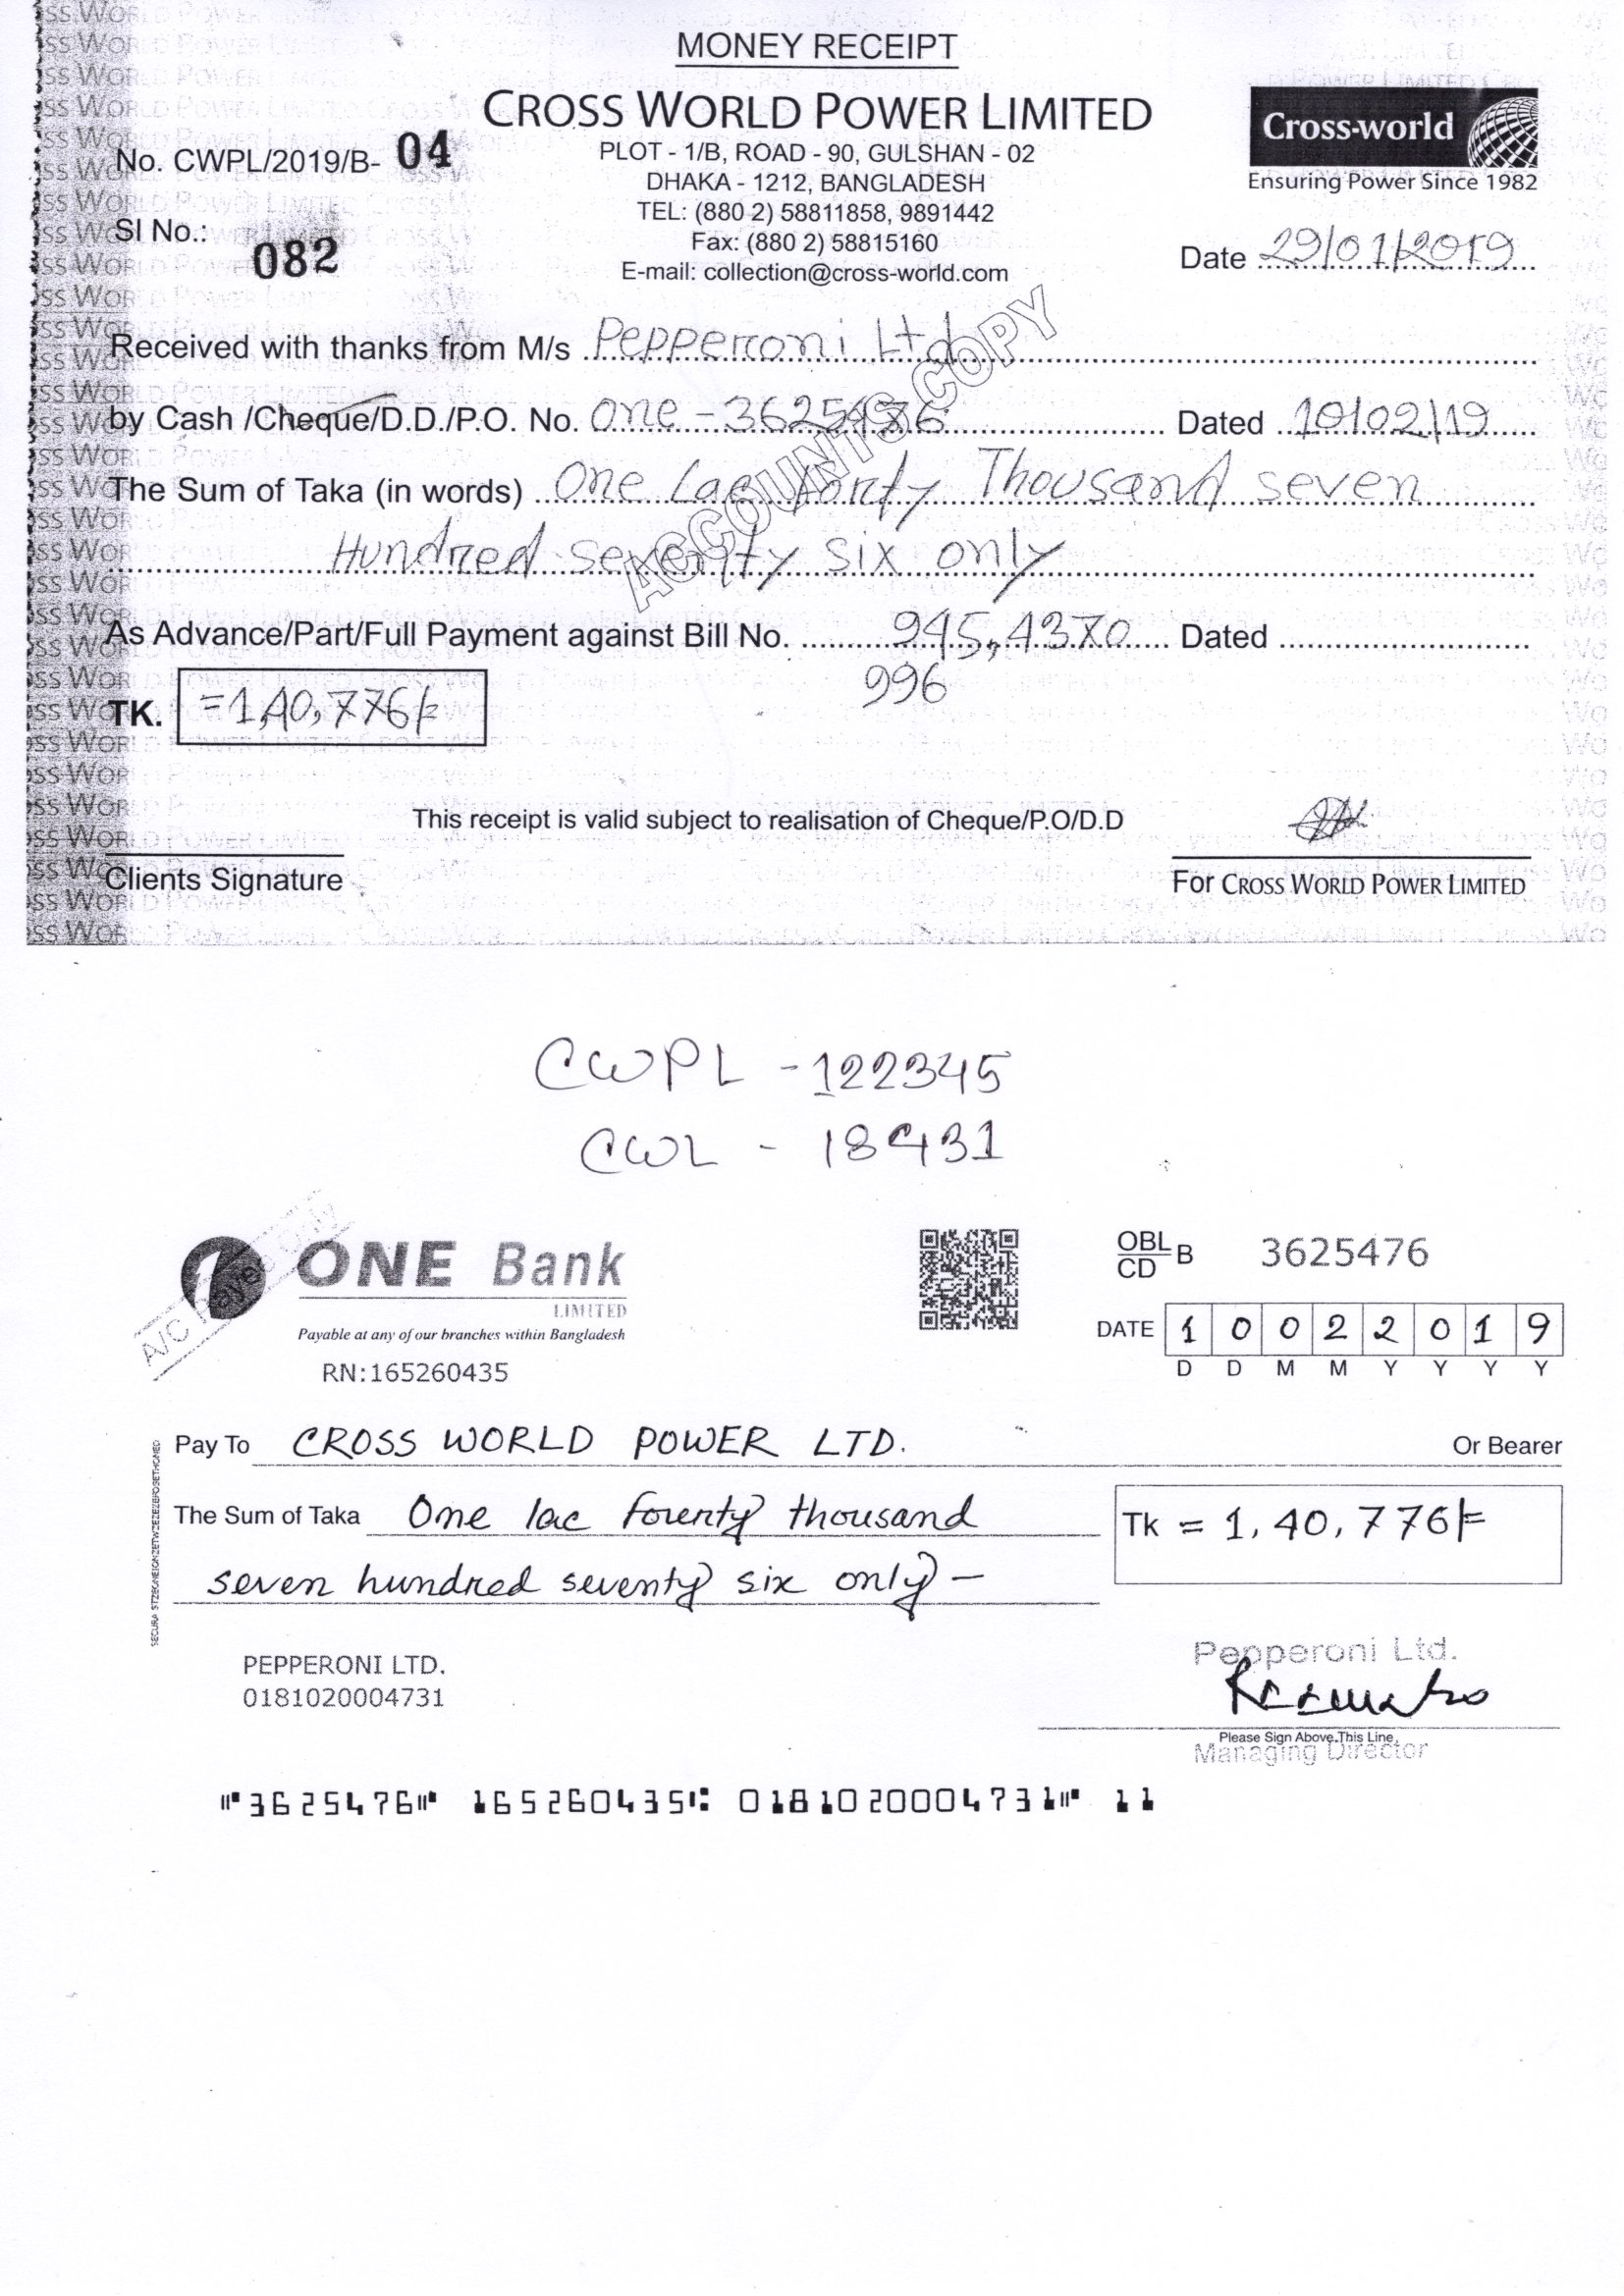 MONEY RECEIPT
CROSS WORLD POWER LIMITED
Cross-world
Ensuring Power Since 1982
No. CWPL/2019/B- 04
PLOT - 1/B, ROAD - 90, GULSHAN - 02
DHAKA - 1212, BANGLADESH
TEL: (880 2) 58811858, 9891442
Sl No.: 082
Fax: (880 2) 58815160
E-mail: collection@cross-world.com
Date 29/01/2019
Received with thanks from M/s Pepperroni Ltd
by Cash /Cheque/D.D./P.O. No. one - 3625476 Dated 10/02/19
The Sum of Taka (in words) One Lac forty Thousand seven
Hundred seventy six only
ACCOUNTS COPY
As Advance/Part/Full Payment against Bill No. 945, 4370 Dated
996
TK. =1,40,776/=
This receipt is valid subject to realisation of Cheque/P.O/D.D
Clients Signature
For CROSS WORLD POWER LIMITED
CWPL - 122345
CWL - 18431
A/C Payee Only
ONE Bank
LIMITED
Payable at any of our branches within Bangladesh
RN:165260435
OBL
CD B 3625476
DATE 1 0 0 2 2 0 1 9
D D M M Y Y Y Y
Pay To CROSS WORLD POWER LTD. Or Bearer
The Sum of Taka One lac fourty thousand
seven hundred seventy six only —
Tk = 1,40,776/=
PEPPERONI LTD.
0181020004731
Pepperoni Ltd.
Please Sign Above This Line
Managing Director
⑈3625476⑈ 165260435⑆ 0181020004731⑈ 11